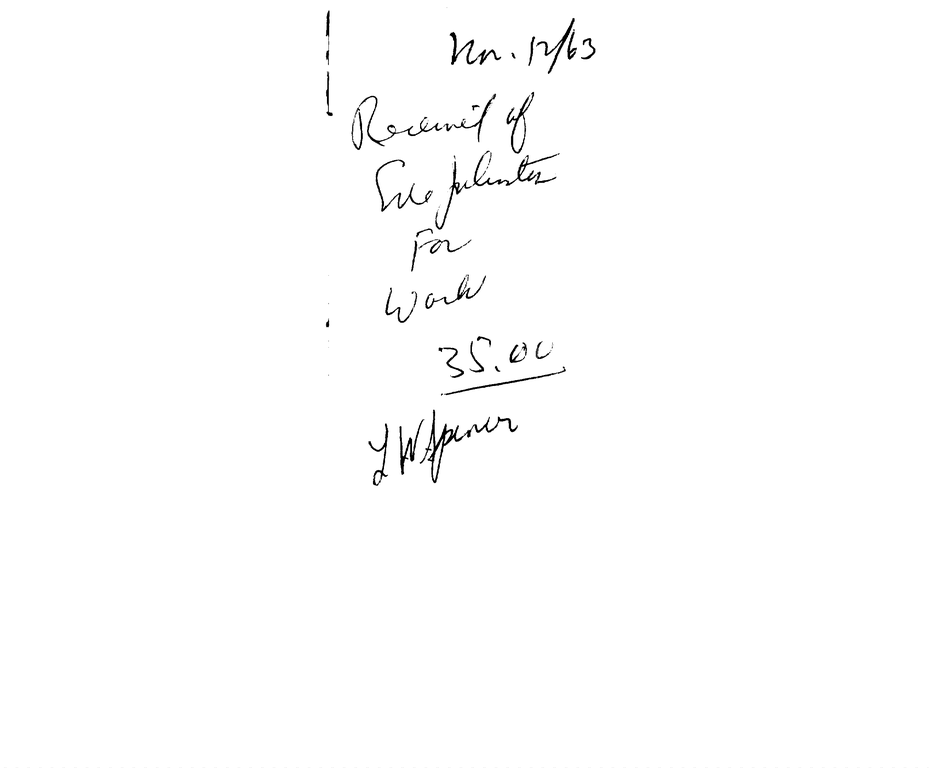 Nov. 12/63
Received of
For
Work
35.00
L W Spencer